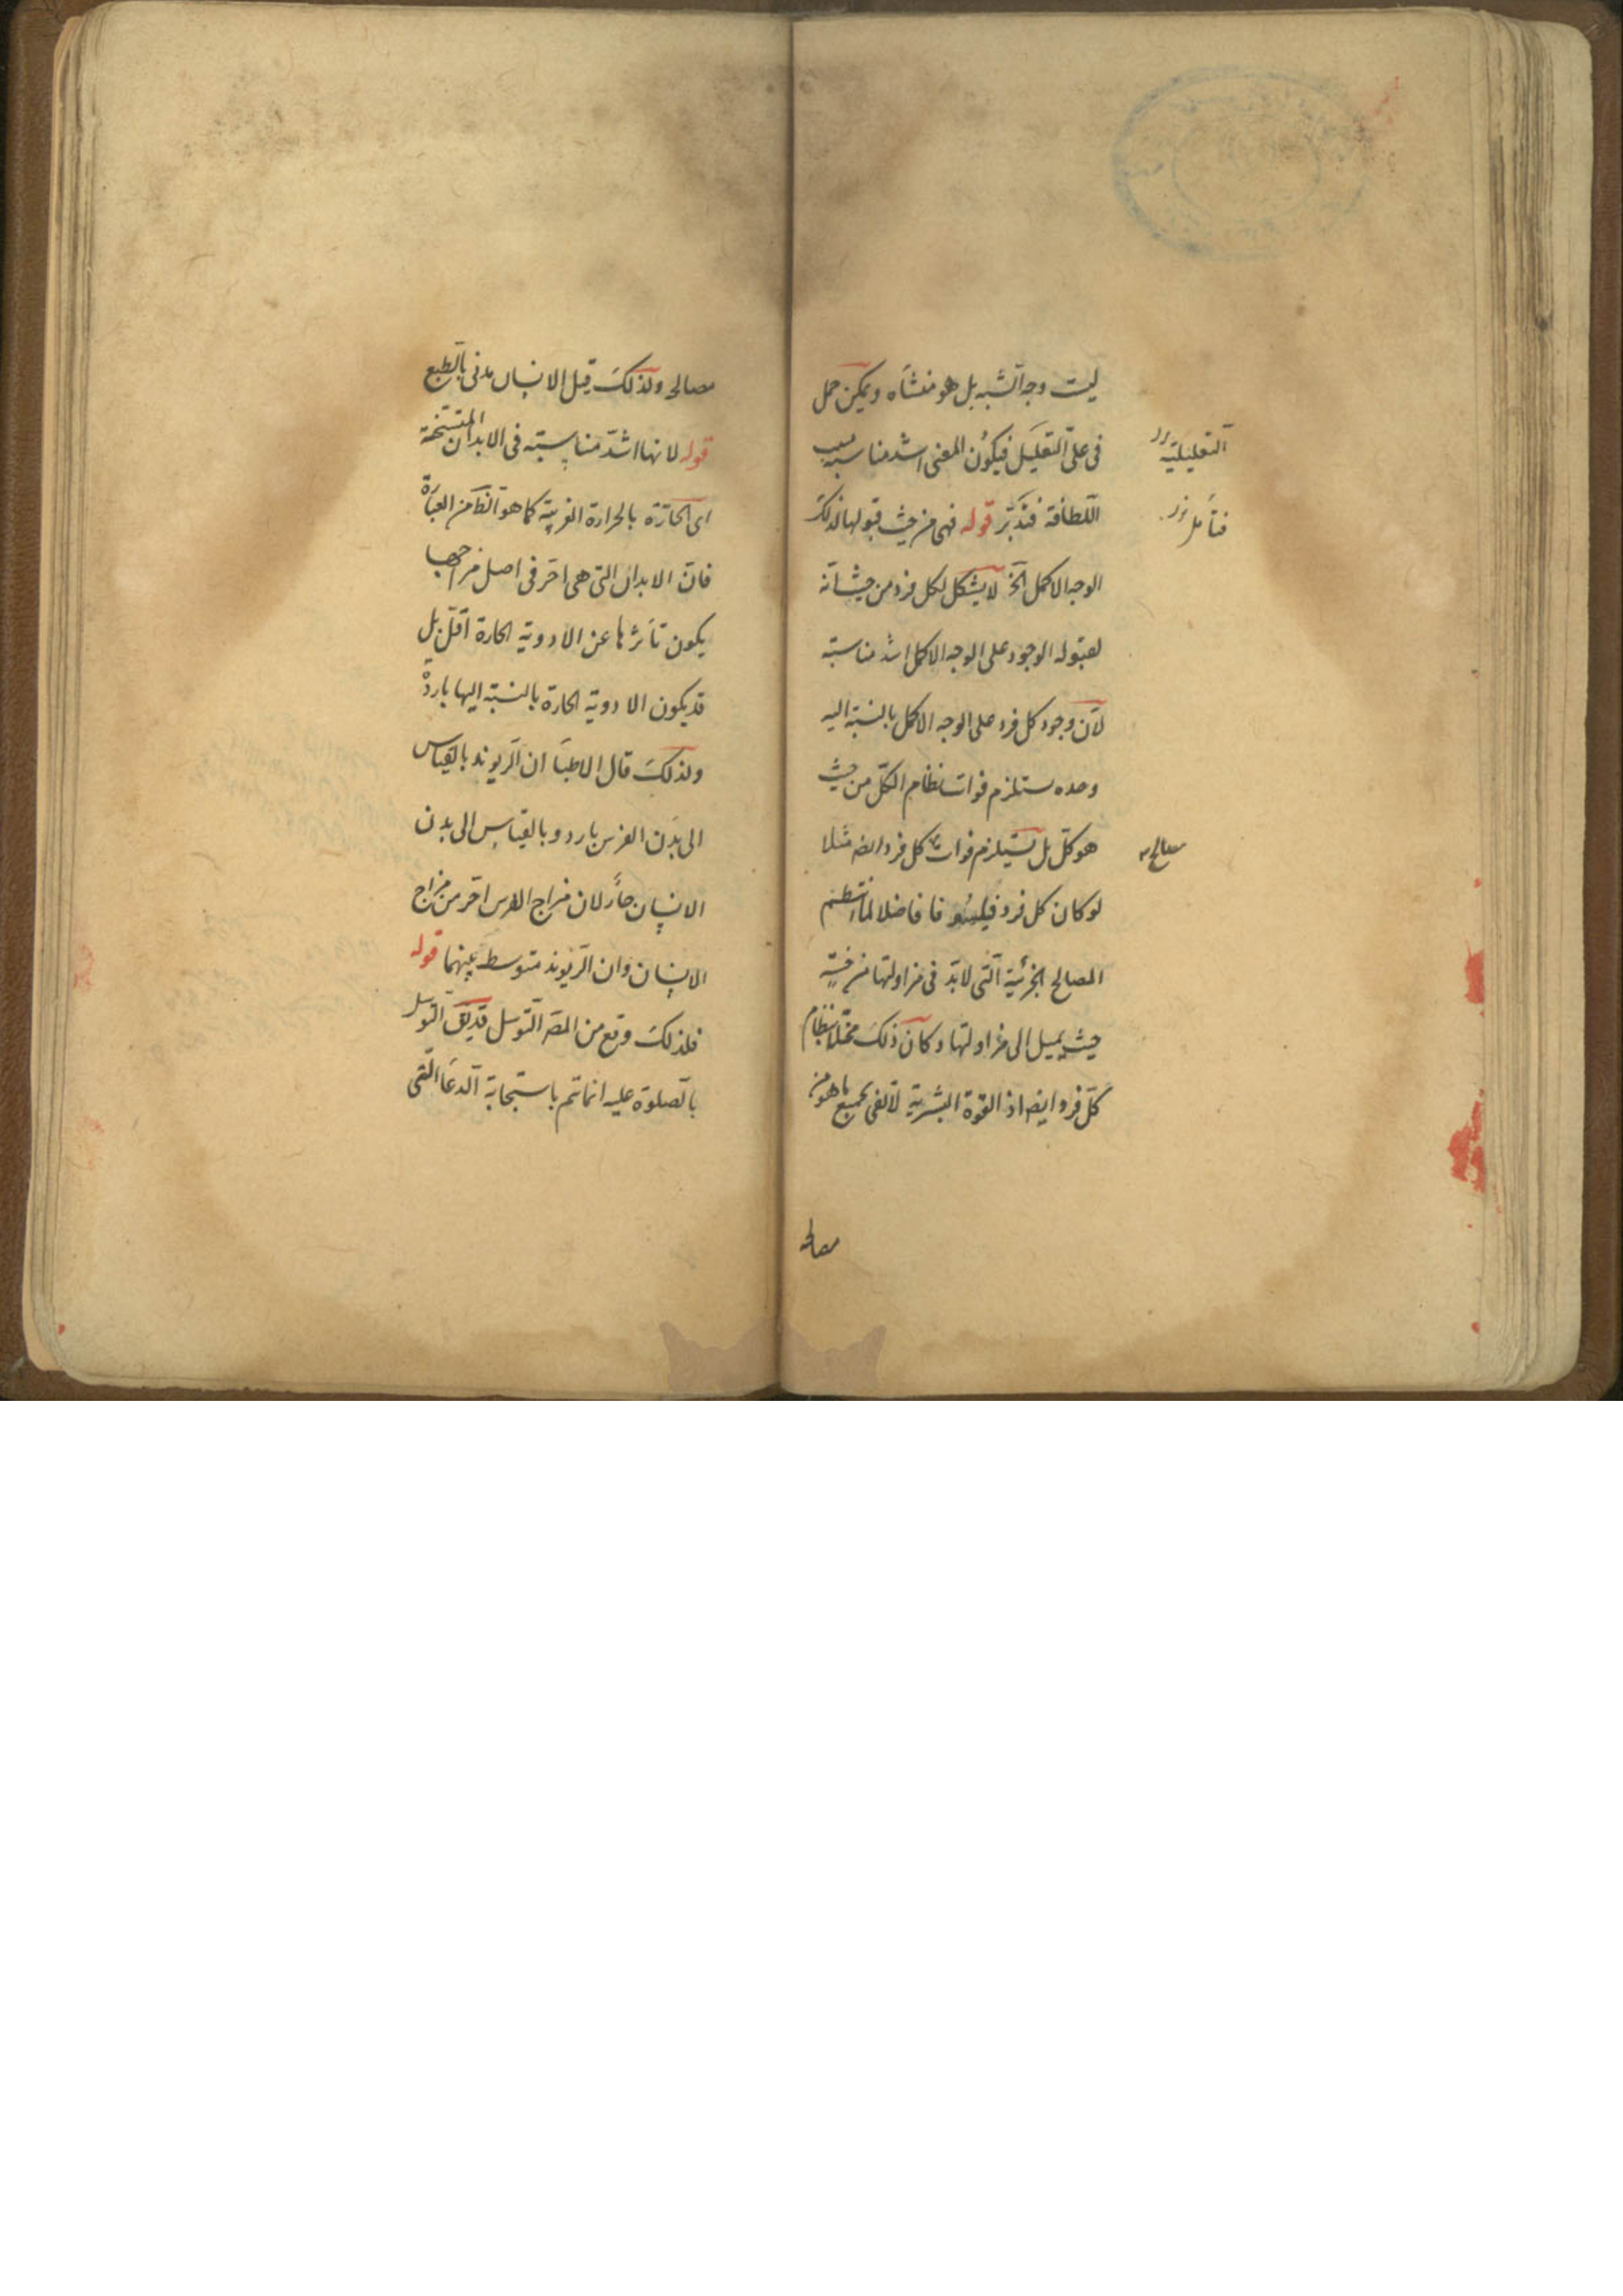 ليست وجه الشبه بل هو منشأه ويمكن حمل
فى على التعليل فيكون المعنى اشد مناسبة بسبب
التعليلية
اللطافة فتدبّر قوله فهى من حيث قبولها لذلك
فتأمل
الوجه الاكمل الخ لا يشكل لكل فرد من حيث انّه
لقبوله الوجود على الوجه الاكمل اشد مناسبته
لانّ وجود كل فرد على الوجه الاكمل بالنسبة اليه
وحده يستلزم فوات نظام الكلّ من حيث
هو كلّ بل يستلزم فوات كل فرد ايضه مثلا
مصالح
لو كان كل فرد فيلسوفا فاضلا لما انتظم
المصالح الجزئية الّتى لابدّ فى مزاولتها من خسّة
حيث يميل الى مزاولتها وكان ذلك مخلّا بنظام
كلّ فرد ايضه اذ القوة البشرية لا تفى بجميع ما هو من
مصالحه
مصالحه ولذلك قيل الانسان مدنى بالطبع
قوله لانها اشدّ مناسبته فى الابدان المتسخنة
اى الحارّة بالحرارة الغريبة كما هو الظ من العبارة
فانّ الابدان التى هى احرّ فى اصل مزاجها
يكون تأثرها عن الادوية الحارة اقلّ بل
قد يكون الادوية الحارة بالنسبة اليها باردة
ولذلك قال الاطباء ان الريوند بالقياس
الى بدن الفرس بارد وبالقياس الى بدن
الانسان حارّ لان مزاج الفرس احرّ من مزاج
الانسان وان الريوند متوسط بينهما قوله
فلذلك وقع من المصّ التوسل قد يق التوسل
بالصلوة عليه انما يتم باستجابة الدعاء التى